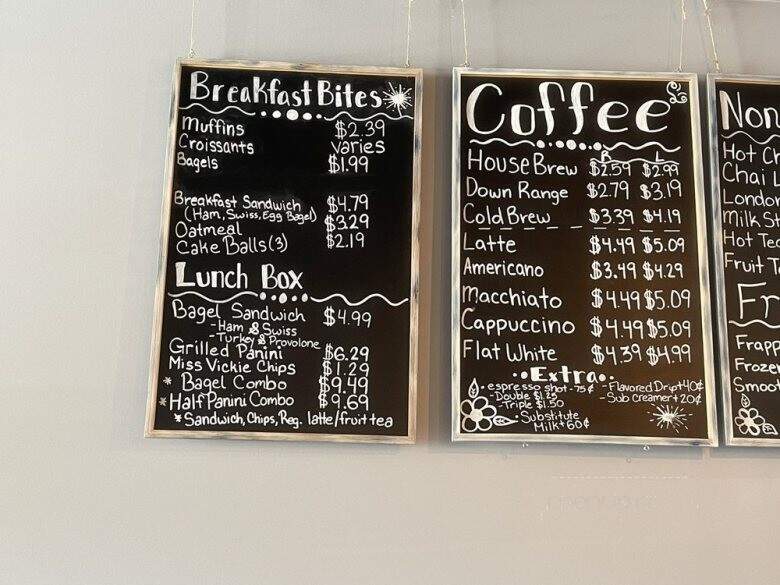 Breakfast Bites
Muffins $2.39
Croissants varies
Bagels $1.99
Breakfast Sandwich $4.79
(Ham, Swiss, Egg Bagel)
Oatmeal $3.29
Cake Balls (3) $2.19
Lunch Box
Bagel Sandwich $4.99
-Ham & Swiss
-Turkey & Provolone
Grilled Panini $6.29
Miss Vickie Chips $1.29
* Bagel Combo $9.49
* Half Panini Combo $9.69
*Sandwich, Chips, Reg. latte/fruit tea
Coffee
R L
House Brew $2.59 $2.99
Down Range $2.79 $3.19
Cold Brew $3.39 $4.19
Latte $4.49 $5.09
Americano $3.49 $4.29
Macchiato $4.49 $5.09
Cappuccino $4.49 $5.09
Flat White $4.39 $4.99
Extra
• espresso shot - 75¢
- Double $1.25
- Triple $1.50
- Substitute
Milk + 60¢
- Flavored Drip + 40¢
- Sub creamer + 20¢
Non
Hot Ch
Chai L
London
Milk St
Hot Tea
Fruit T
Fr
Frapp
Frozen
Smoo